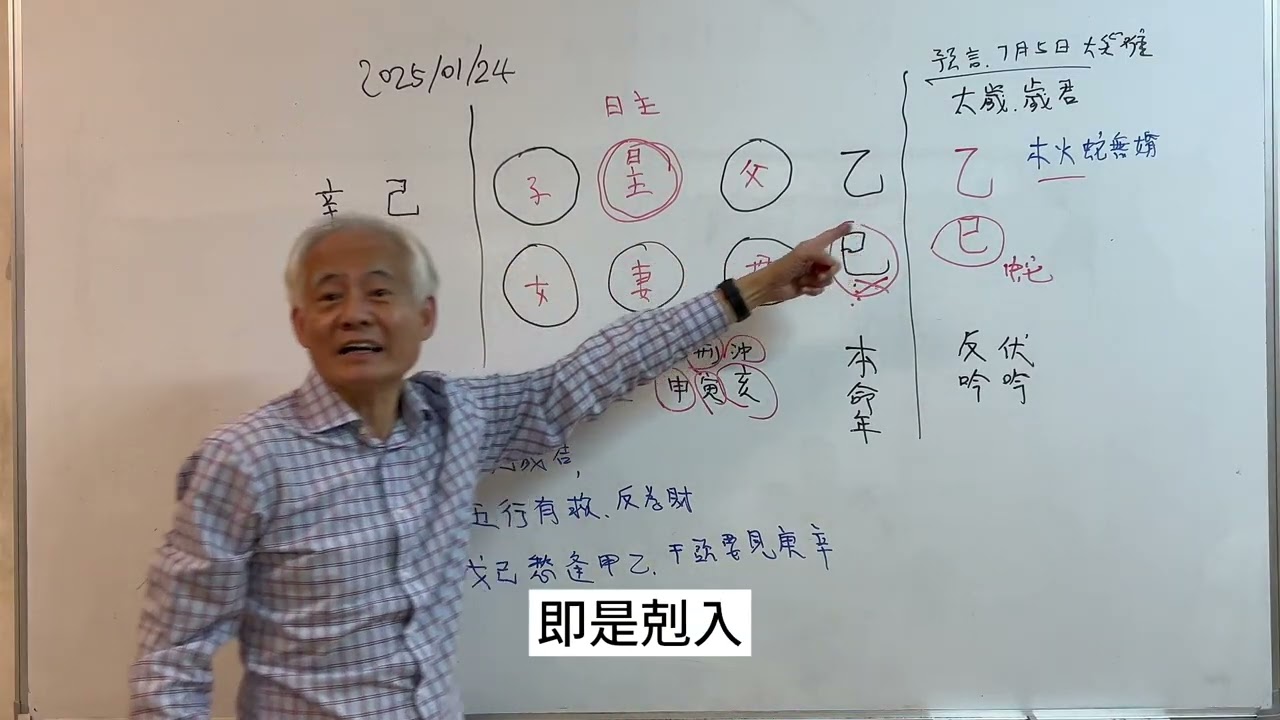 2025/01/24
預言.7月5日大災難
太歲.歲君
日主
木火蛇無婿
辛 己
子 日主 父 乙
乙
女 妻 母 巳
巳 蛇
刑 沖
申 寅 亥
本命年
反吟 伏吟
五行有救.反為財
戊己愁逢甲乙.干頭要見庚辛
即是剋入